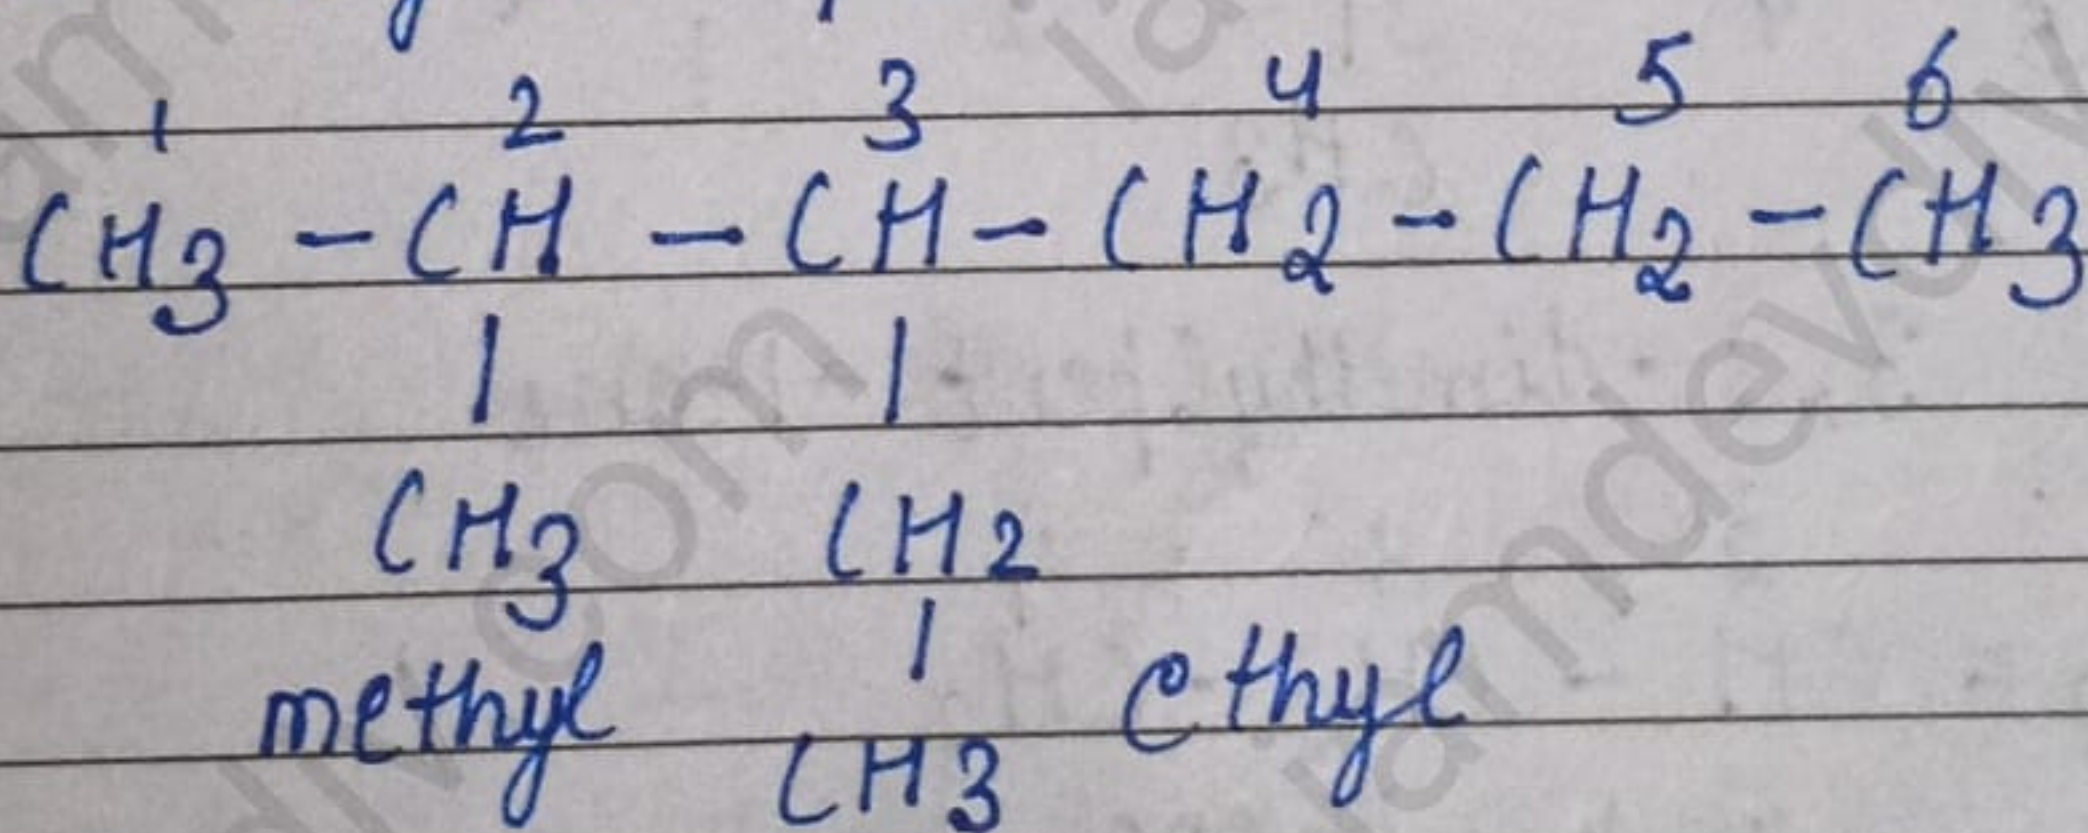 1 2 3 4 5 6
CH3 - CH - CH - CH2 - CH2 - CH3
| |
CH3 CH2
methyl | ethyl
CH3